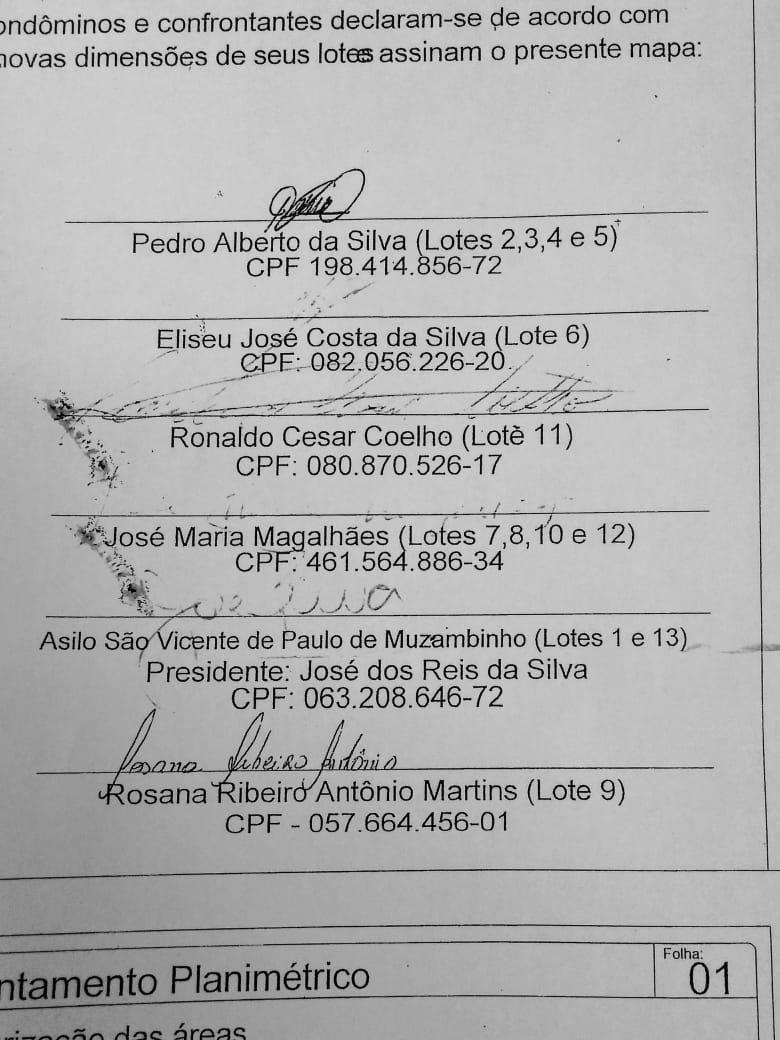 ondôminos e confrontantes declaram-se de acordo com
novas dimensões de seus lotes assinam o presente mapa:
Pedro Alberto da Silva (Lotes 2,3,4 e 5)
CPF 198.414.856-72
Eliseu José Costa da Silva (Lote 6)
CPF: 082.056.226-20
Coelho
Ronaldo Cesar Coelho (Lote 11)
CPF: 080.870.526-17
José Maria Magalhães (Lotes 7,8,10 e 12)
CPF: 461.564.886-34
Asilo São Vicente de Paulo de Muzambinho (Lotes 1 e 13)
Presidente: José dos Reis da Silva
CPF: 063.208.646-72
Rosana Ribeiro Antônio
Rosana Ribeiro Antônio Martins (Lote 9)
CPF - 057.664.456-01
Folha:
ntamento Planimétrico 01
rização das áreas